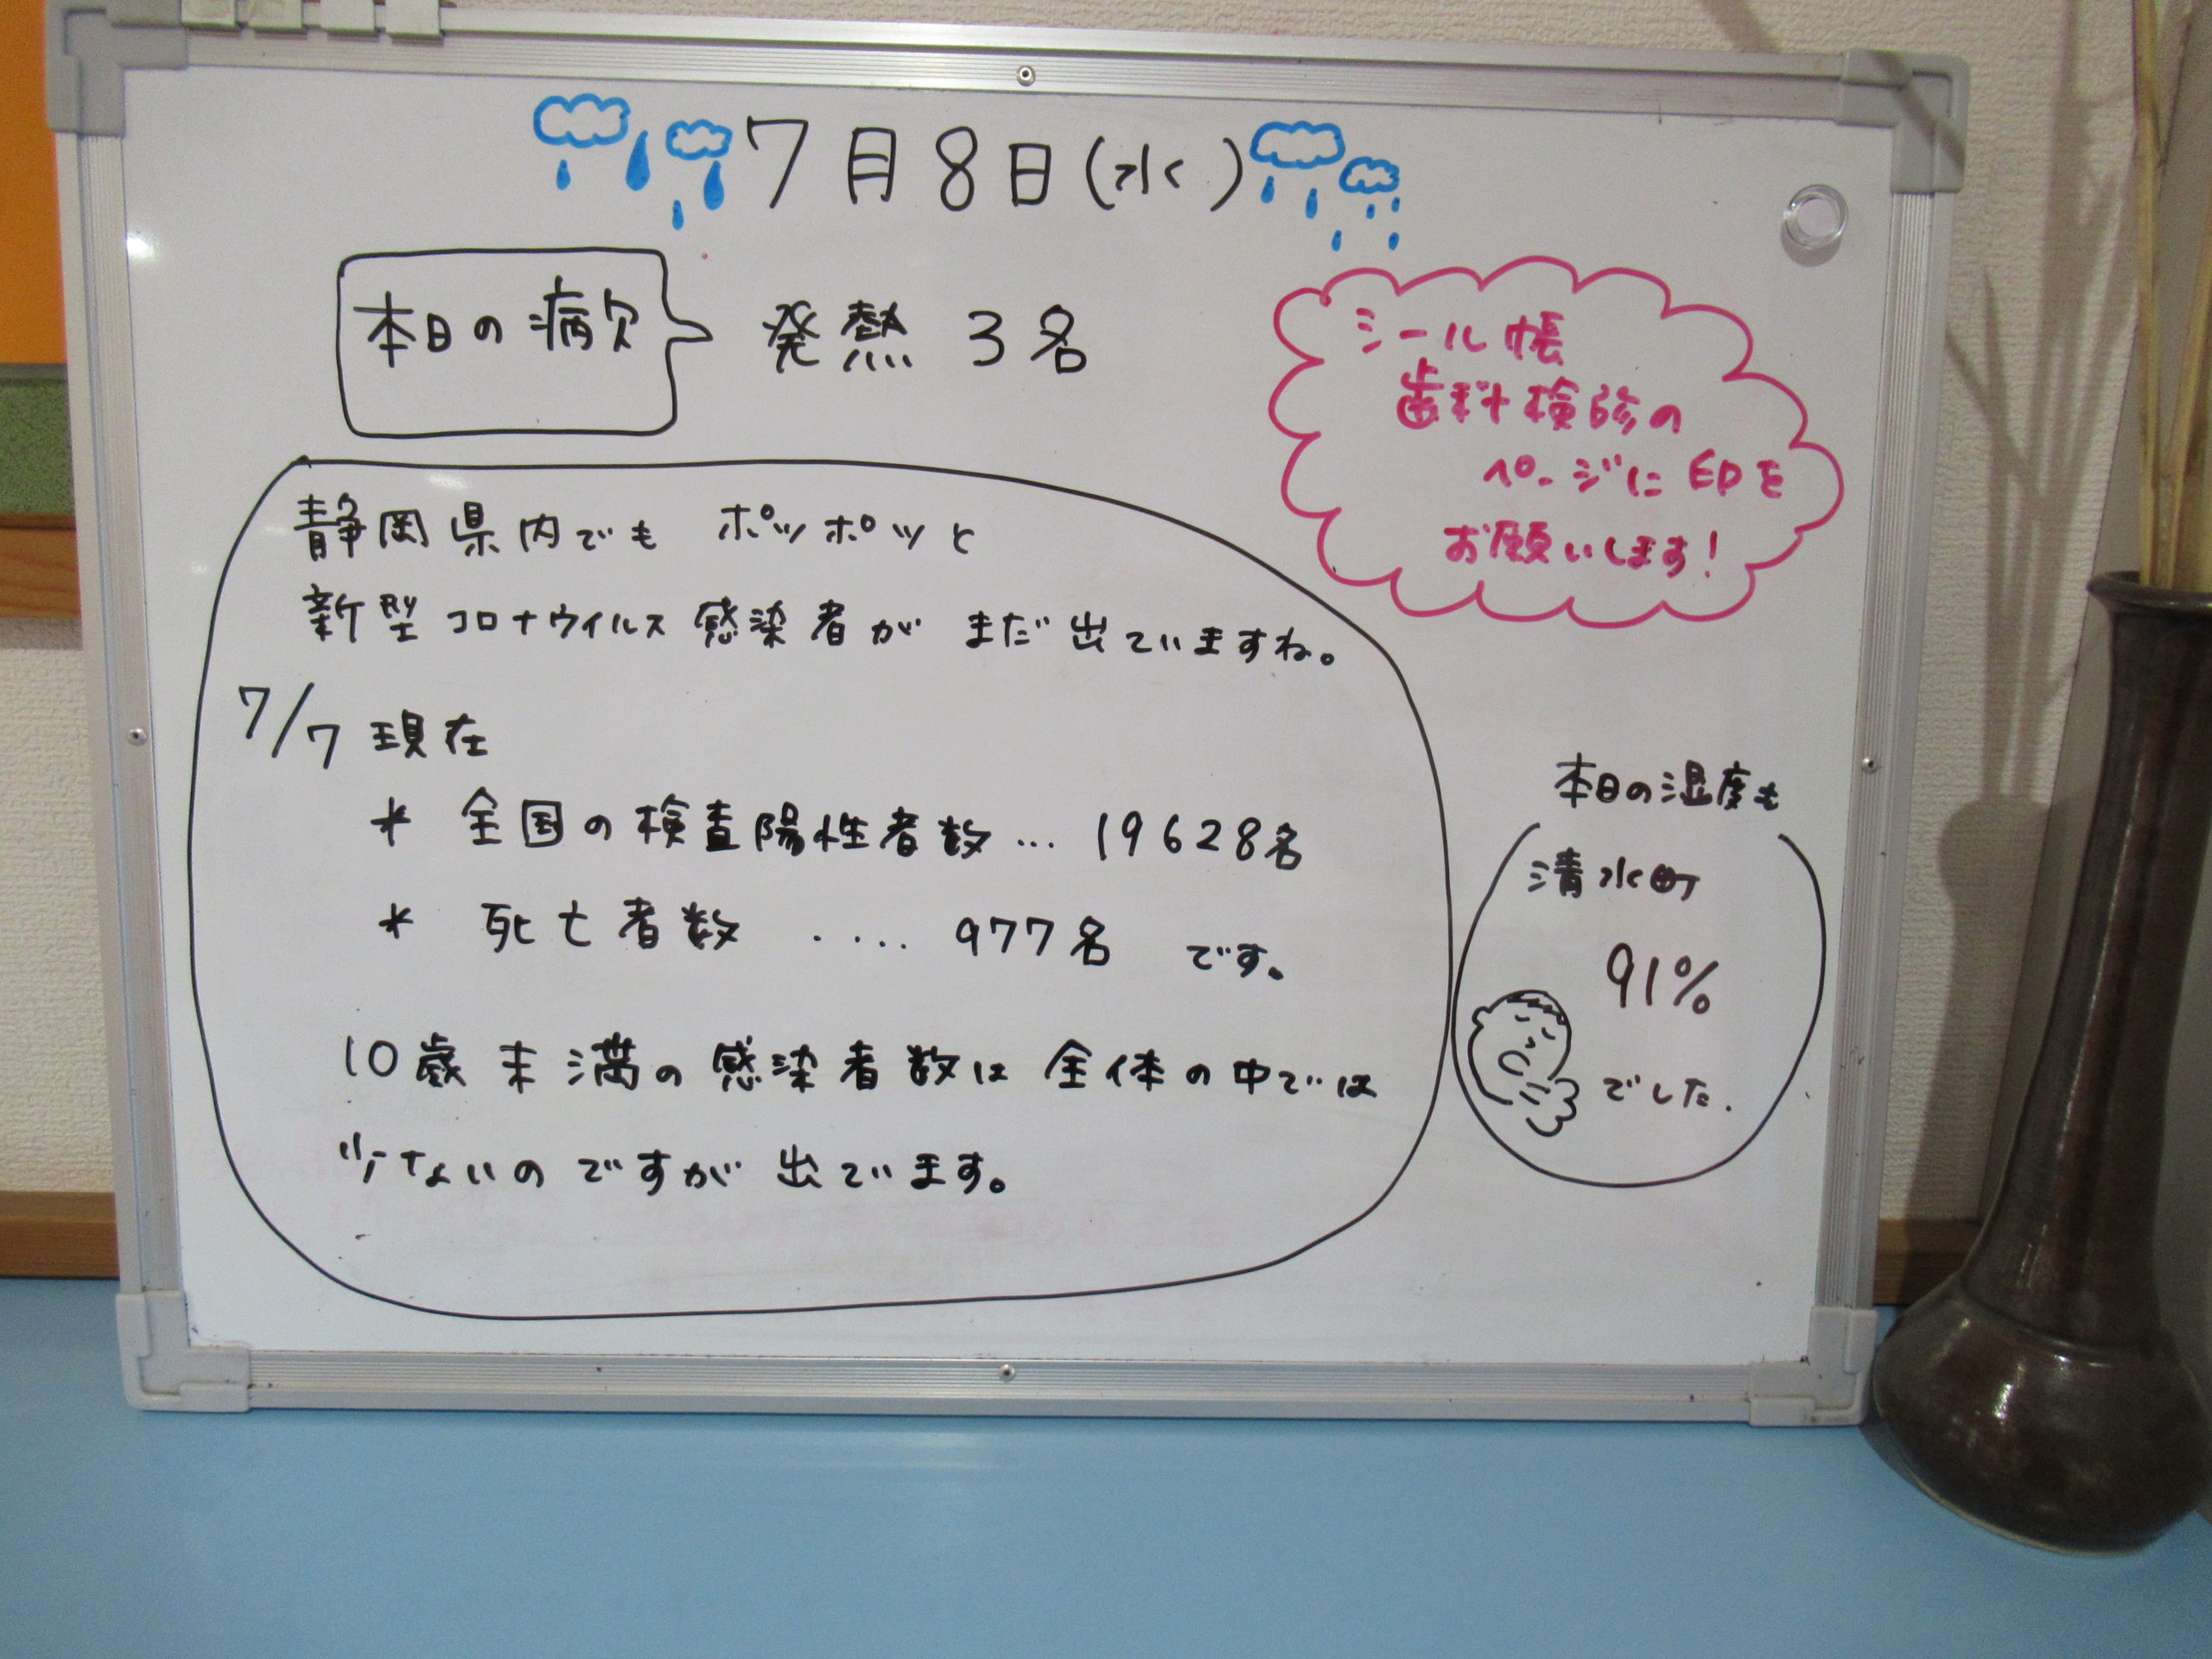 7月8日(水)
本日の病欠
発熱 3名
シール帳
歯科検診の
ページに印を
お願いします!
静岡県内でも ポツポツと
新型コロナウイルス感染者が まだ出ていますね。
7/7 現在
* 全国の検査陽性者数… 19628名
* 死亡者数 ‥‥ 977名 です。
10歳未満の感染者数は 全体の中では
少ないのですが 出ています。
本日の湿度も
清水町
91%
でした.